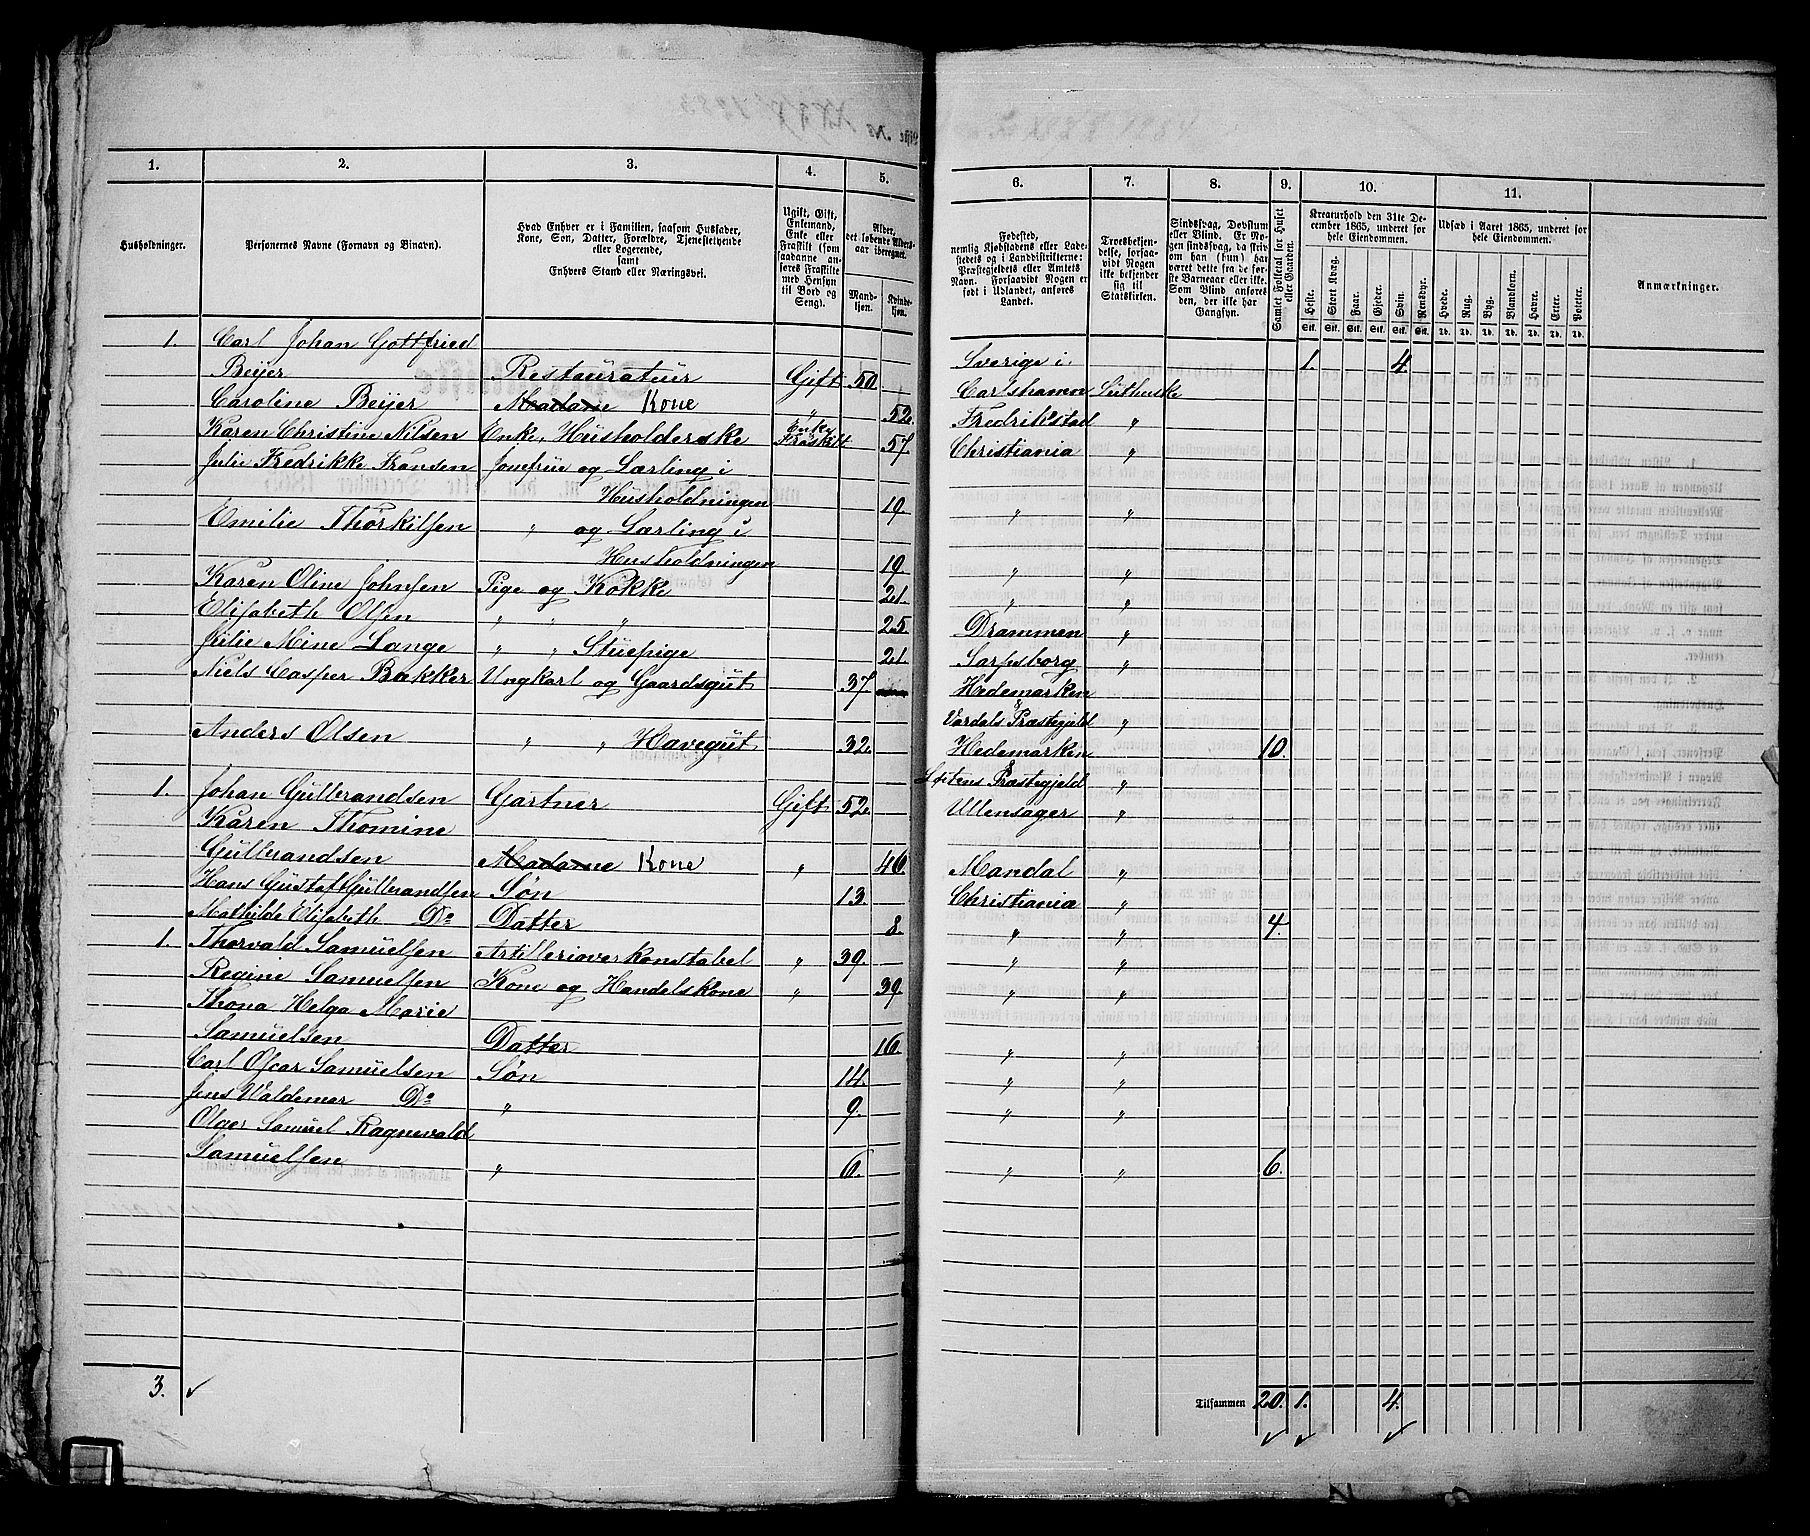 1. 2. 3. 4. 5.
Husholdninger. Personernes Navne (Fornavn og Binavn). Hvad Enhver er i Familien, saasom Husfader, Kone, Søn, Datter, Forældre, Tjenestetyende eller Logerende, samt Enhvers Stand eller Næringsvei. Ugift, Gift, Enkemand, Enke eller Fraskilt (som saadanne anføres Fraskilte med Hensyn til Bord og Seng). Alder, det løbende Aldersaar iberegnet. Mandkjøn. Kvindekjøn.
1. Carl Johan Gottfried
Beijer Restaurateur Gift 50.
Caroline Beijer Madame Kone " 52.
Karen Christine Nilsen Enke, Husholderske Enke Fraskilt 57.
Julie Fredrikke Fransen Jomfrue og Lærling i
Husholdningen 19.
Emilie Thorkilsen " og Lærling i
Husholdningen 19.
Karen Oline Johnsen Pige og Kokke 21.
Elisabeth Olsen " " " 25
Julie Mine Lange " " Stuepige 21.
Niels Casper Bakker Ungkarl og Gaardsgut 37
Anders Olsen " " Havegut 32.
1. Johan Gulbrandsen Gartner Gift 52.
Karen Thomine
Gulbrandsen Madame Kone " 46.
Hans Gustaf Gulbrandsen Søn 13.
Mathilde Elisabeth Do Datter 8.
1. Thorvald Samuelsen Artillerioverkonstabel " 39.
Regine Samuelsen Kone og Handelskone " 39.
Thona Helga Marie
Samuelsen Datter 16.
Carl Oscar Samuelsen Søn 14.
Jens Valdemar Do " 9.
Olger Samuel Ragnevald
Samuelsen " 6.
3.
6. 7. 8. 9. 10. 11.
Fødested, nemlig Kjøbstadens eller Ladestedets og i Landdistrikterne: Præstegjeldets eller Amtets Navn. Forsaavidt Nogen er født i Udlandet, anføres Landet. Troesbekjendelse, forsaavidt Nogen ikke bekjender sig til Statskirken. Sindssvag, Døvstum eller Blind. Er Nogen sindssvag, da skrives om han (hun) har været dette fra de første Barneaar eller ikke. Som Blind anføres den, der ikke har Gangsyn. Samlet Folketal for Huset eller Gaarden. Kreaturhold den 31te December 1865, underet for hele Eiendommen. Udsæd i Aaret 1865, underet for hele Eiendommen. Anmærkninger.
Heste. Stort Kvæg. Faar. Gjeder. Svin. Rensdyr. Hvede. Rug. Byg. Blandkorn. Havre. Erter. Poteter.
Stk. Stk. Stk. Stk. Stk. Stk. Td. Td. Td. Td. Td. Td. Td.
Sverige i 1. 4.
Carlshamn Luthuske
Fredrikstad "
Christiania "
" "
" "
" "
Drammen "
Sarpsborg "
Hedemarken
Vardals Præstegjeld "
Hedemarken 10.
Løitens Præstegjeld "
Ullensager "
Mandal "
Christiania "
" " 4.
" "
" "
" "
" "
" "
" " 6.
Tilsammen 20. 1. 4.